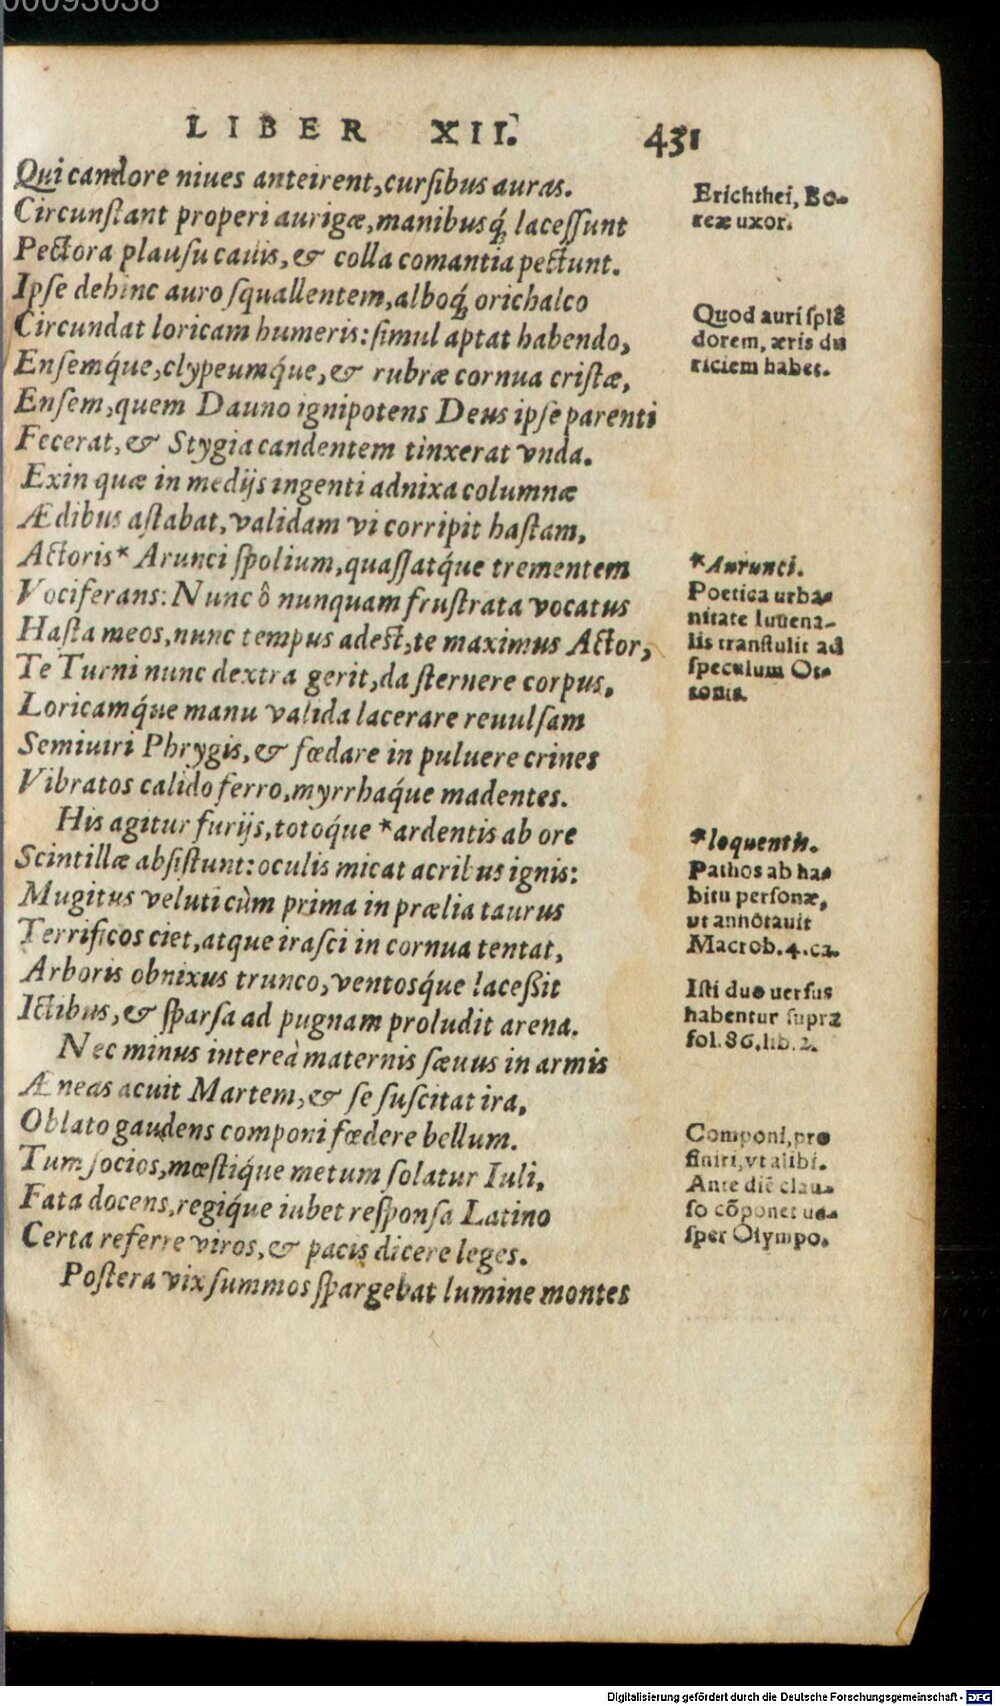 00093038
LIBER XII. 431
Qui candore niues anteirent, cursibus auras.
Circunstant properi aurigæ, manibusq́; lacessunt
Pectora plausu cauis, & colla comantia pectunt.
Ipse dehinc auro squallentem, alboq́; orichalco
Circundat loricam humeris: simul aptat habendo,
Ensemq́ue, clypeumq́ue, & rubræ cornua cristæ,
Ensem, quem Dauno ignipotens Deus ipse parenti
Fecerat, & Stygia candentem tinxerat vnda.
Exin quæ in medijs ingenti adnixa columnæ
Ædibus astabat, validam vi corripit hastam,
Actoris* Arunci spolium, quassatq́ue trementem
Vociferans: Nunc ô nunquam frustrata vocatus
Hasta meos, nunc tempus adest, te maximus Actor,
Te Turni nunc dextra gerit, da sternere corpus,
Loricamq́ue manu valida lacerare reuulsam
Semiuiri Phrygis, & fœdare in puluere crines
Vibratos calido ferro, myrrhaq́ue madentes.
His agitur furijs, totoq́ue *ardentis ab ore
Scintillæ absistunt: oculis micat acribus ignis:
Mugitus veluti cùm prima in prælia taurus
Terrificos ciet, atque irasci in cornua tentat,
Arboris obnixus trunco, ventosq́ue lacessit
Ictibus, & sparsa ad pugnam proludit arena.
Nec minus intereà maternis sæuus in armis
Æneas acuit Martem, & se suscitat ira,
Oblato gaudens componi fœdere bellum.
Tum socios, mœstiq́ue metum solatur Iuli,
Fata docens, regiq́ue iubet responsa Latino
Certa referre viros, & pacis dicere leges.
Postera vix summos spargebat lumine montes
Erichthei, Bo-
reæ uxor.
Quod auri splē
dorem, æris du
riciem habet.
*Aurunci.
Poetica urba-
nitate Iuuena-
lis transtulit ad
speculum Ot-
tonis.
*loquentis.
Pathos ab ha-
bitu personæ,
ut annotauit
Macrob. 4. ca.
Isti duo uersus
habentur supra
fol. 86. lib. 2.
Componi, pro
finiri, vt alibi.
Ante diē clau-
so cōponet ue-
sper Olympo.
Digitalisierung gefördert durch die Deutsche Forschungsgemeinschaft - DFG